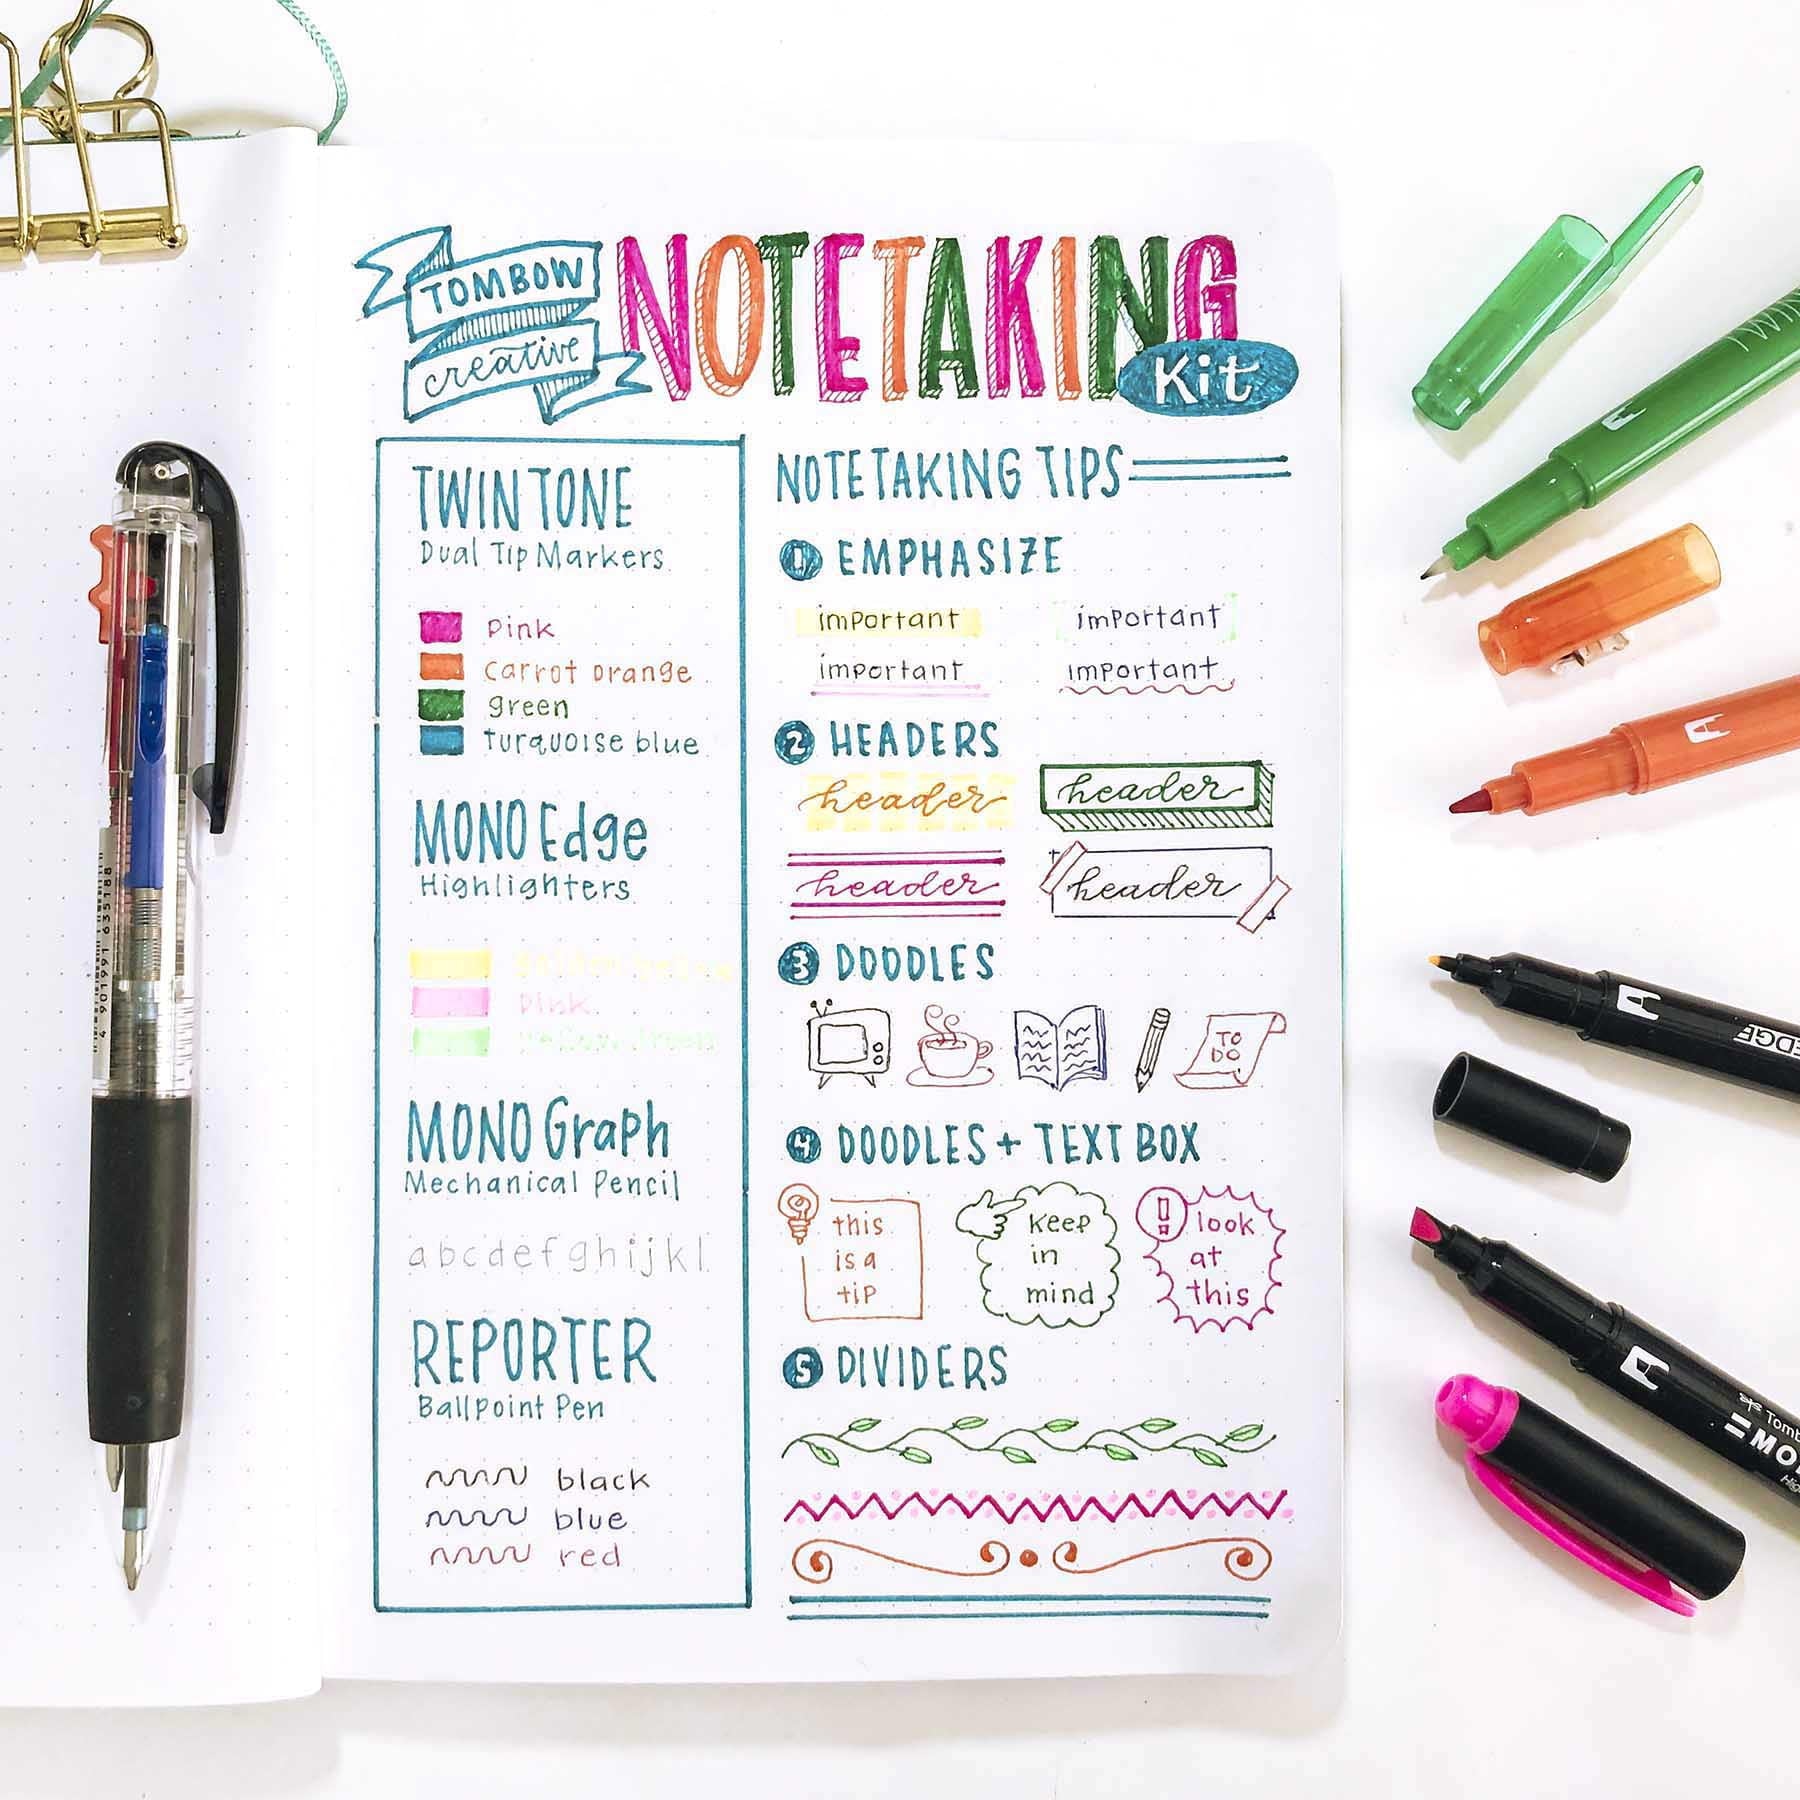 TOMBOW
creative
NOTETAKING
Kit
TWINTONE
Dual Tip Markers
pink
carrot orange
green
turquoise blue
MONO Edge
Highlighters
golden yellow
pink
yellow green
MONO Graph
Mechanical Pencil
abcdefghijkl
REPORTER
Ballpoint Pen
black
blue
red
NOTETAKING TIPS
1 EMPHASIZE
important important
important important
2 HEADERS
header header
header header
3 DOODLES
TO
DO
4 DOODLES + TEXT BOX
this
is a
tip
keep
in
mind
! look
at
this
5 DIVIDERS
4 901991 635188
TWIN
EDGE
Tomb
MO